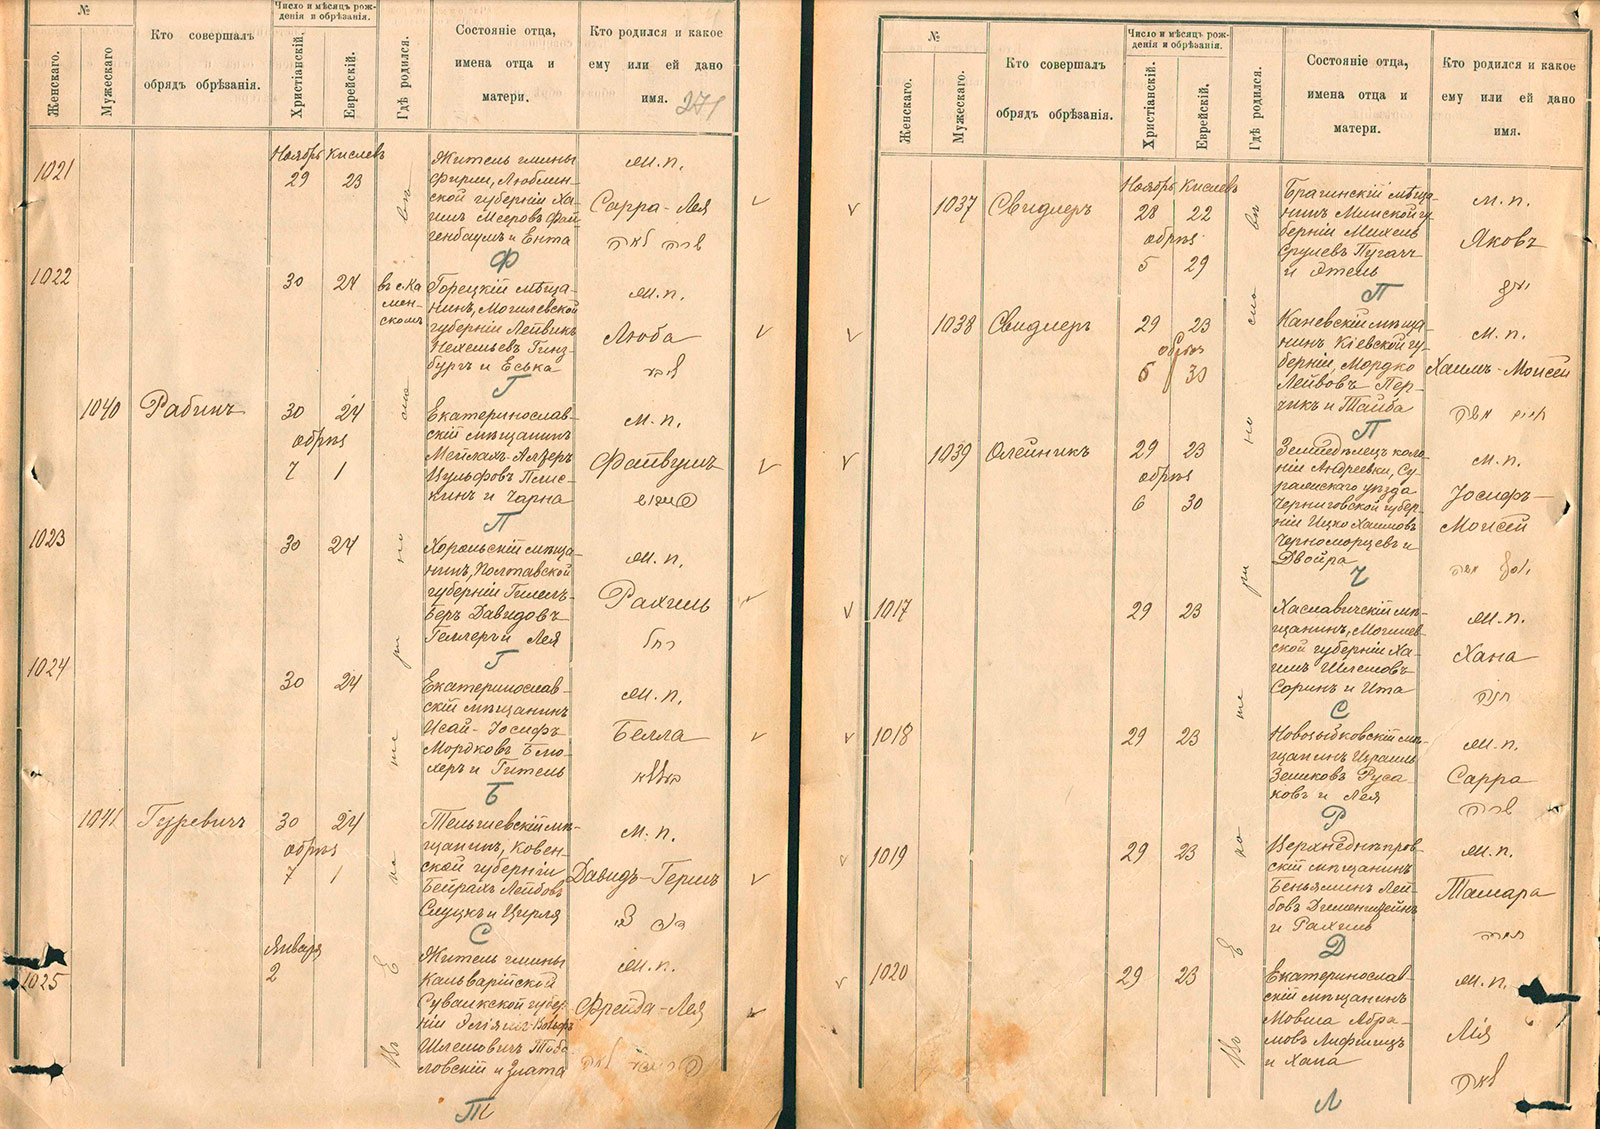 №
Женскаго.
Мужескаго
Кто совершалъ
обрядъ обрѣзанія.
Число и мѣсяцъ рож-
денія и обрѣзанія.
Христіанскій.
Еврейскій.
Гдѣ родился.
Состояніе отца,
имена отца и
матери.
Кто родился и какое
ему или ей дано
имя.
271
1021
Ноябрь Кислевъ
29 23
Житель гмины
Фирлеи, Люблин-
ской губерніи Ха-
имъ Мееровъ Фай-
генбаумъ и Ента
м.п.
Сарра-Лея
שרה לאה
Ф
1022
30 24
въ с. Ка
мен-
скомъ
Горецкій мѣща-
нинъ, Могилевской
губерніи Лейвикъ
Нехемьевъ Гинз-
бургъ и Еська
м.п.
Люба
ליבא
Г
1040
Рабинъ
30 24
обрѣз
7 1
Екатеринослав-
скій мѣщанинъ
Мейлахъ-Алтеръ
Вульфовъ Плис-
кинъ и Чарна
м.п.
Файвушъ
פייוויש
П
1023
30 24
Хорольскій мѣща-
нинъ, Полтавской
губерніи Гилелъ-
Беръ Давидовъ
Геллеръ и Лея
м.п.
Рахиль
רחל
Г
1024
30 24
Екатеринослав-
скій мѣщанинъ
Исай-Іосифъ
Мордковъ Блю-
херъ и Гитель
м.п.
Белла
Б
1041
Гуревичъ
30 24
обрѣз
7 1
Тельшевскій мѣ-
щанинъ, Ковен-
ской губерніи
Бейрахъ Лейбовъ
Слуцкъ и Цирля
м.п.
Давидъ-Гершъ
דוד צבי
С
1025
Января
2
Житель гмины
Кальварійской
Сувалкской губер-
ніи Эліяшъ-Вольфъ
Шлемовичъ Тобо-
ловскій и Злата
м.п.
Фрейда-Лея
פריידא לאה
Т
Въ Е ка те ри но сла въ
№
Женскаго.
Мужескаго.
Кто совершалъ
обрядъ обрѣзанія.
Число и мѣсяцъ рож-
денія и обрѣзанія.
Христіанскій.
Еврейскій.
Гдѣ родился.
Состояніе отца,
имена отца и
матери.
Кто родился и какое
ему или ей дано
имя.
1037
Свидлеръ
Ноябрь Кислевъ
28 22
обрѣз
5 29
Брагинскій мѣща-
нинъ Минской гу-
берніи Михель
Срулевъ Пугачъ
и Этель
м.п.
Яковъ
יעקב
П
1038
Свидлеръ
29 23
обрѣз
6 30
Каневскій мѣща-
нинъ Кіевской гу-
берніи, Мордко
Лейбовъ Пер-
чикъ и Тайба
м.п.
Хаимъ-Моисей
חיים משה
П
1039
Олейникъ
29 23
обрѣз
6 30
Земледѣлецъ коло-
ніи Андреевки, Су-
ражскаго уѣзда
Черниговской губер-
ніи Ицко Хаимовъ
Черноморцевъ и
Двойра
м.п.
Іосифъ-
Моисей
יוסף משה
Ч
1017
29 23
Хаславичскій мѣ-
щанинъ, Могилев-
ской губерніи Ха-
имъ Шлемовъ
Соринъ и Ита
м.п.
Хана
חנה
С
1018
29 23
Новозыбковскій мѣ-
щанинъ Израиль
Зеликовъ Руса-
ковъ и Лея
м.п.
Сарра
שרה
Р
1019
29 23
Верхнеднѣпров-
скій мѣщанинъ
Беньяминъ Лей-
бовъ
и Рахиль
м.п.
Тамара
תמרה
Д
1020
29 23
Екатеринослав-
скій мѣщанинъ
Мовша Абра-
мовъ Лифшицъ
и Хана
м.п.
Лія
לאה
Л
Въ Е ка те ри но сла въ